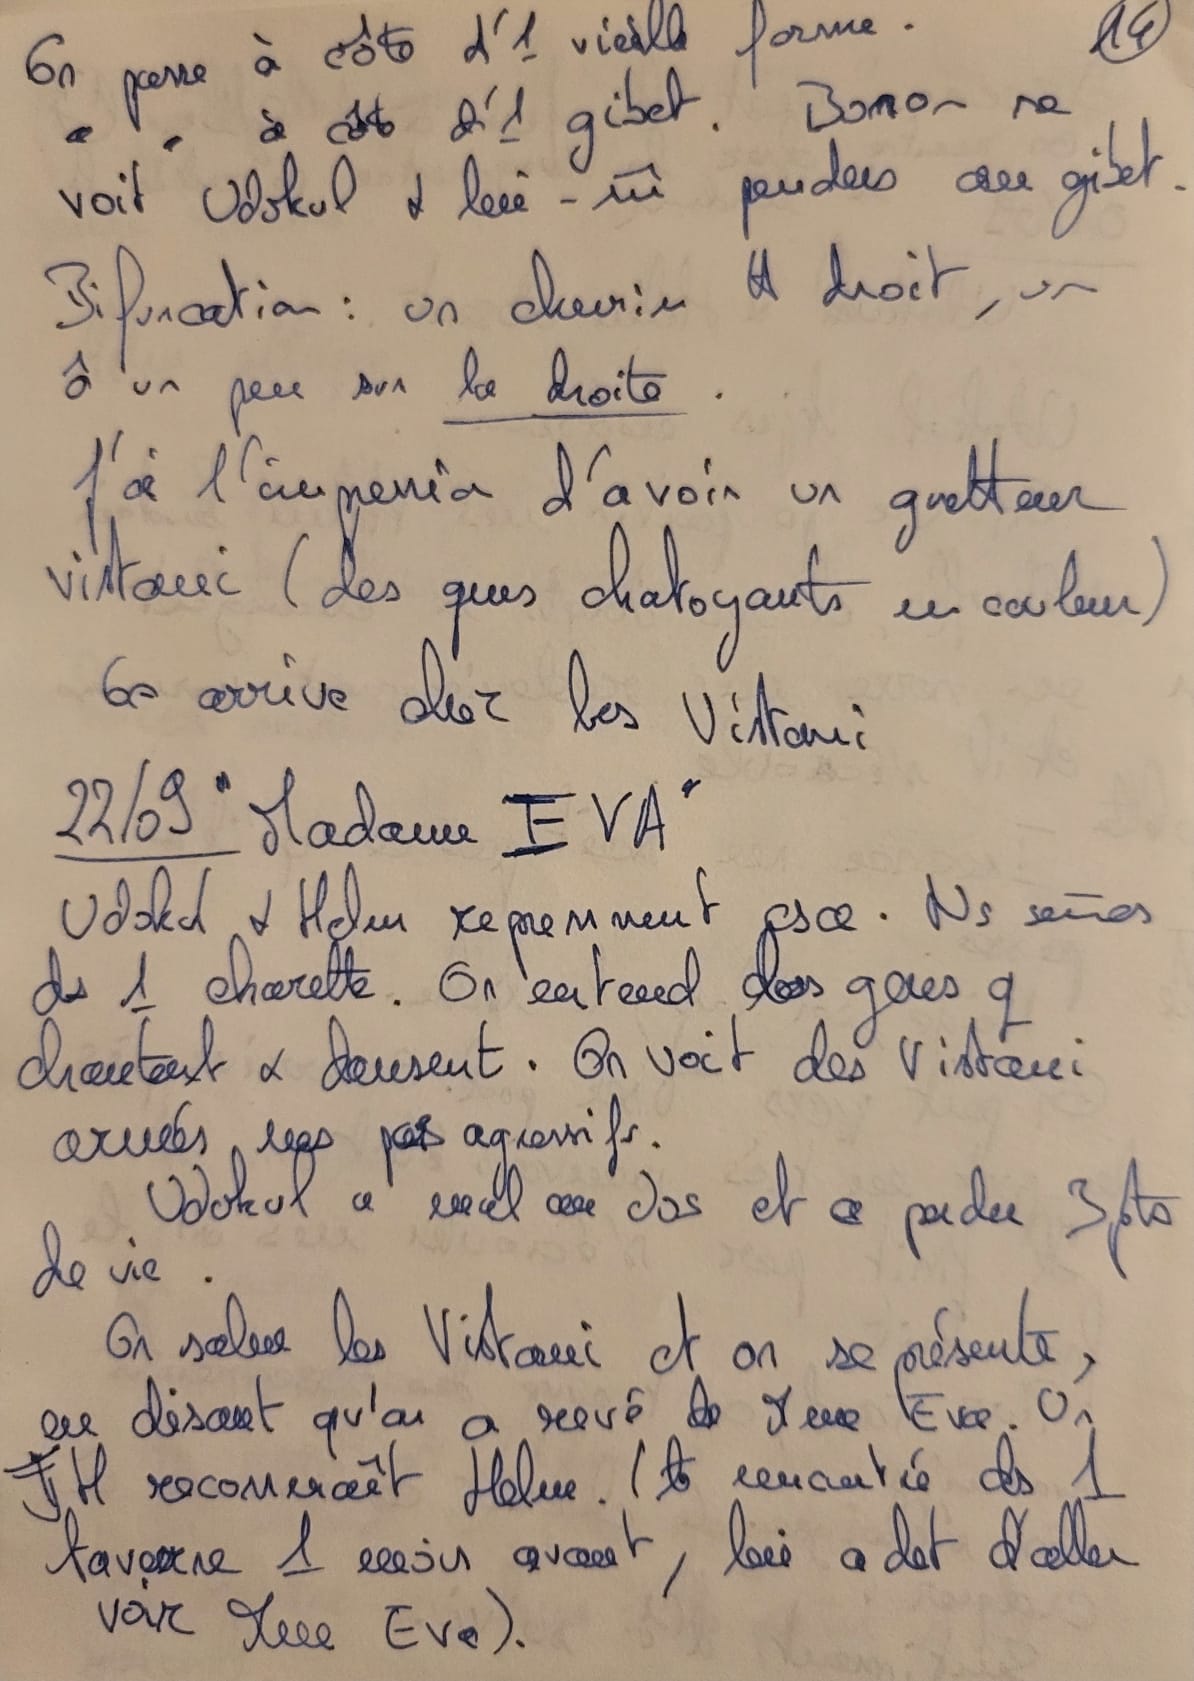 On passe à côté d'1 vieille ferme. 14
" " à côté d'1 gibet. Bomon se
voit Udokul & lui-m̂ pendus au gibet.
Bifurcation : un chemin tt droit, un
à un peu sur la droite.
J'ai l'impression d'avoir un guetteur
vistani (des gens chatoyants en couleur)
On arrive chez les Vistani
22/09 "Madame EVA"
Udokul & Helm reprennent csce. Ns sommes
ds 1 charette. On entend des gens q
chantent & dansent. On voit des Vistani
armés mais pas agressifs.
Udokul a mal au dos et a perdu 3 pts
de vie.
On salue les Vistani et on se présente,
en disant qu'on a rêvé de Mme Eva. Un
H reconnaît Helm. (l'a rencontré ds 1
taverne 1 mois avant, lui a dit d'aller
voir Mme Eva).